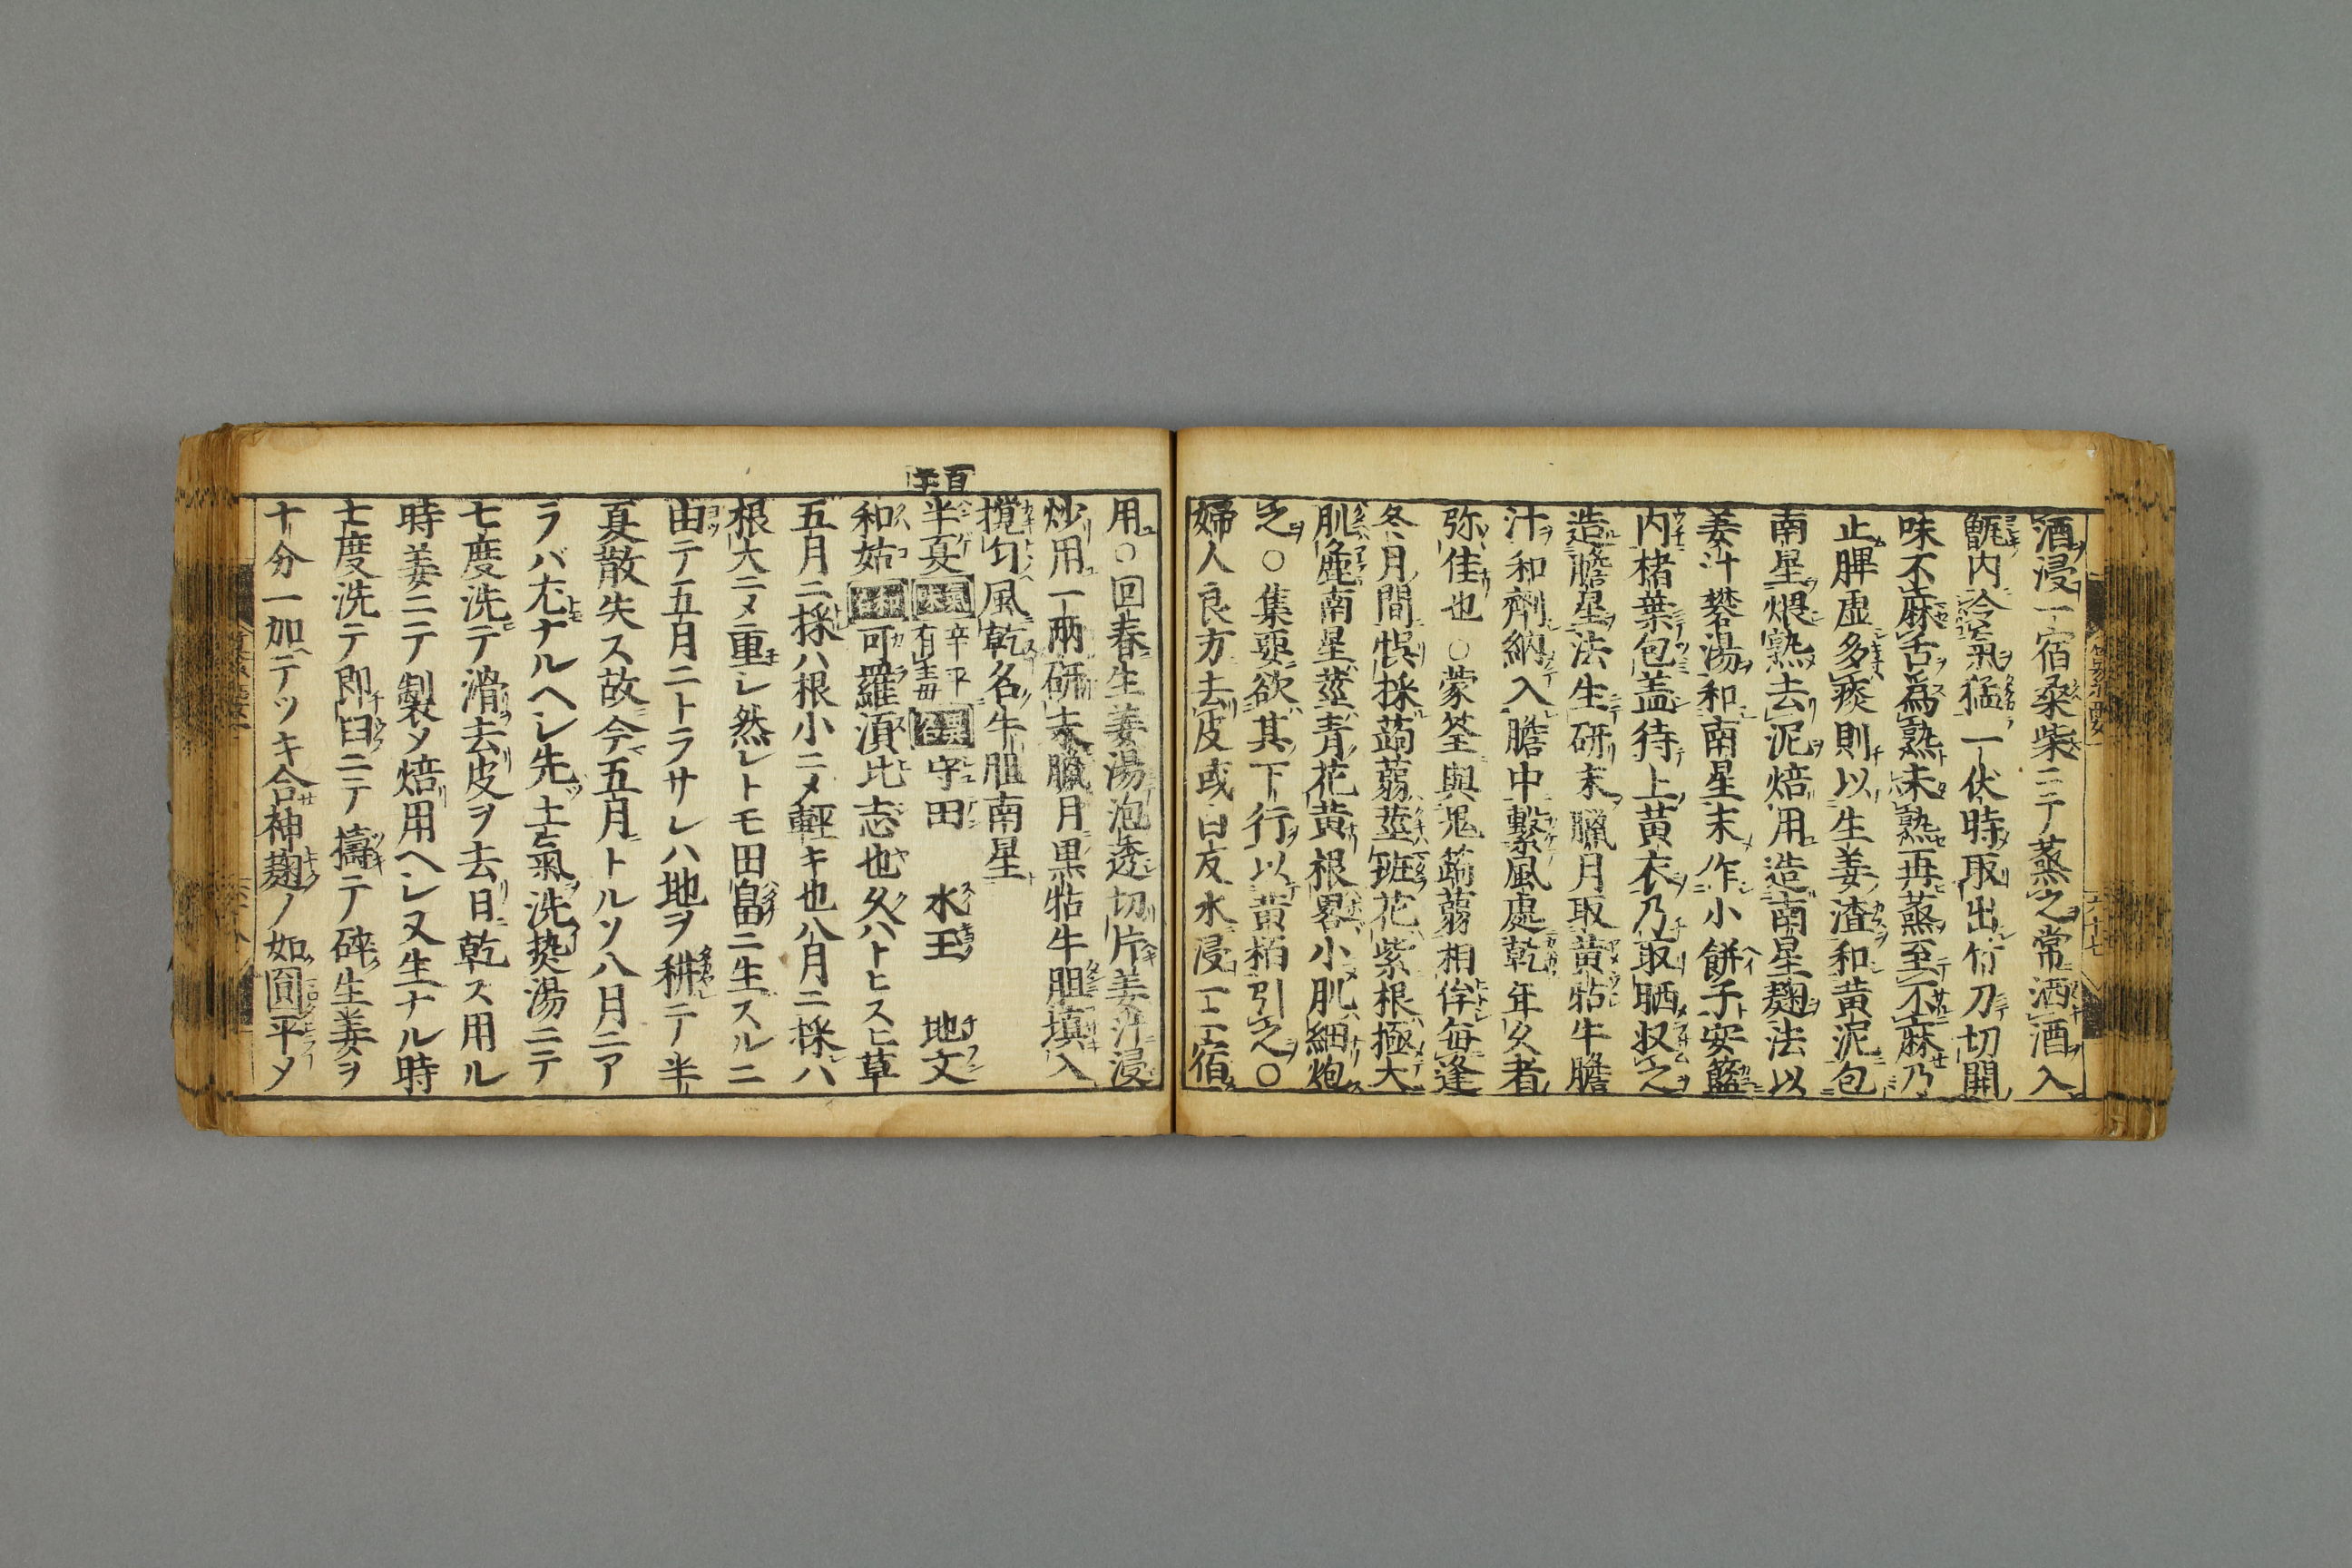 酒浸一宿桑柴ニテ蒸之常洒酒入
甑内令氣猛一伏時取出竹刀切開
味不麻舌為熟未熟再蒸至不麻乃
止脾虚多痰則以生姜渣和黄泥包
南星煨熟去泥焙用造南星麹法以
姜汁礬湯和南星末作小餅子安籃
内楮葉包盖待上黄衣乃取晒収之
造膽星法生研末臘月取黄牯牛膽
汁和劑納入膽中繋風處乾年久者
弥佳也○蒙筌與鬼蒟蒻相侔毎逢
冬月間悞採蒟蒻莖班花紫根極大
肌麁南星莖青花黄根畧小肌細炮
之○集要欲其下行以黄栢引之○
婦人良方去皮或白灰水浸一二宿
用○回春生姜湯泡透切片姜汁浸
炒用一両研末臘月黒牯牛胆填入
攪匀風乾名牛胆南星
半夏 辛平有毒 守田 水玉 地文
和姑 可羅湏比志也久ハトヒス草
五月ニ採ハ根小ニメ輕キ也八月ニ採ハ
根大ニメ重レ然レトモ田畠ニ生スルニ
由テ五月ニトラサレハ地ヲ耕テ半
夏散失ス故今五月トルソ八月ニア
ラバ尤ナルヘレ先土氣洗𤍠湯ニテ
七度洗テ滑去皮ヲ去日乾ス用ル
時姜ニテ製メ焙用ヘレ又生ナル時
七度洗テ即臼ニテ擣テ碎生姜ヲ
十分一加テツキ合神麹ノ如圓平メ